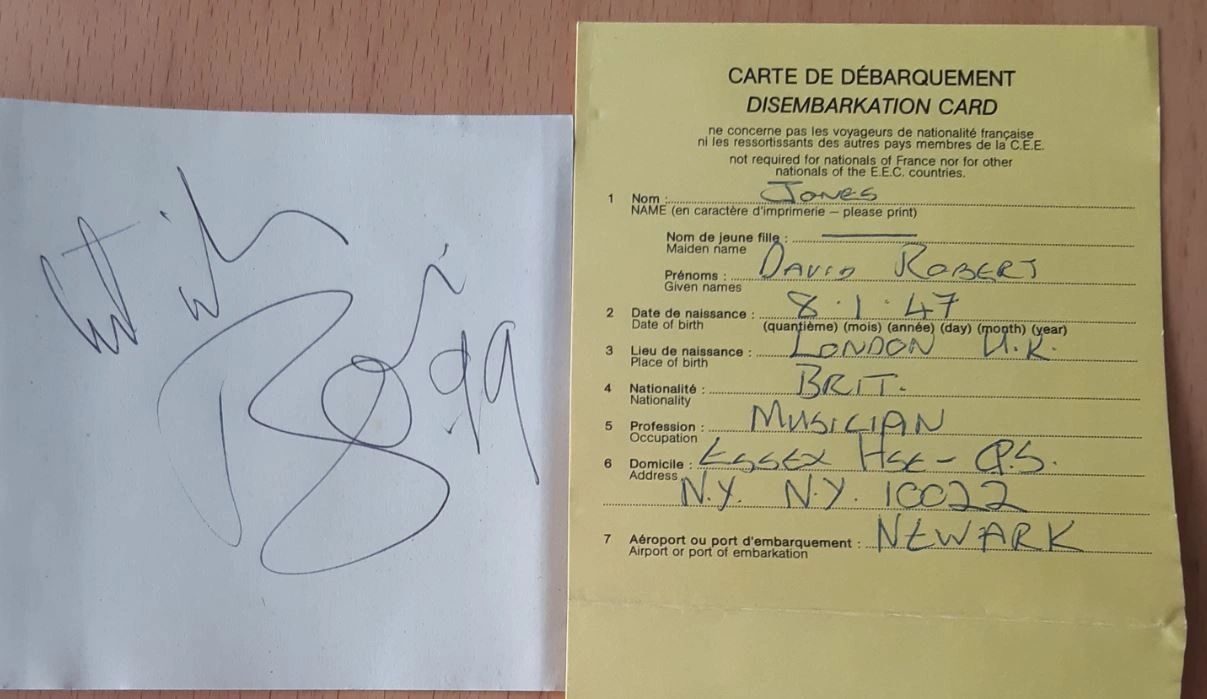 Bowie 99
CARTE DE DÉBARQUEMENT
DISEMBARKATION CARD
ne concerne pas les voyageurs de nationalité française
ni les ressortissants des autres pays membres de la C.E.E.
not required for nationals of France nor for other
nationals of the E.E.C. countries.
1 Nom : JONES
NAME (en caractère d'imprimerie – please print)
Nom de jeune fille : ―
Maiden name
Prénoms : DAVID ROBERT
Given names
2 Date de naissance : 8.1.47
Date of birth (quantième) (mois) (année) (day) (month) (year)
3 Lieu de naissance : LONDON U.K.
Place of birth
4 Nationalité : BRIT.
Nationality
5 Profession : MUSICIAN
Occupation
6 Domicile : ESSEX HSE – C.P.S.
Address N.Y. N.Y. 10022
7 Aéroport ou port d'embarquement : NEWARK
Airport or port of embarkation